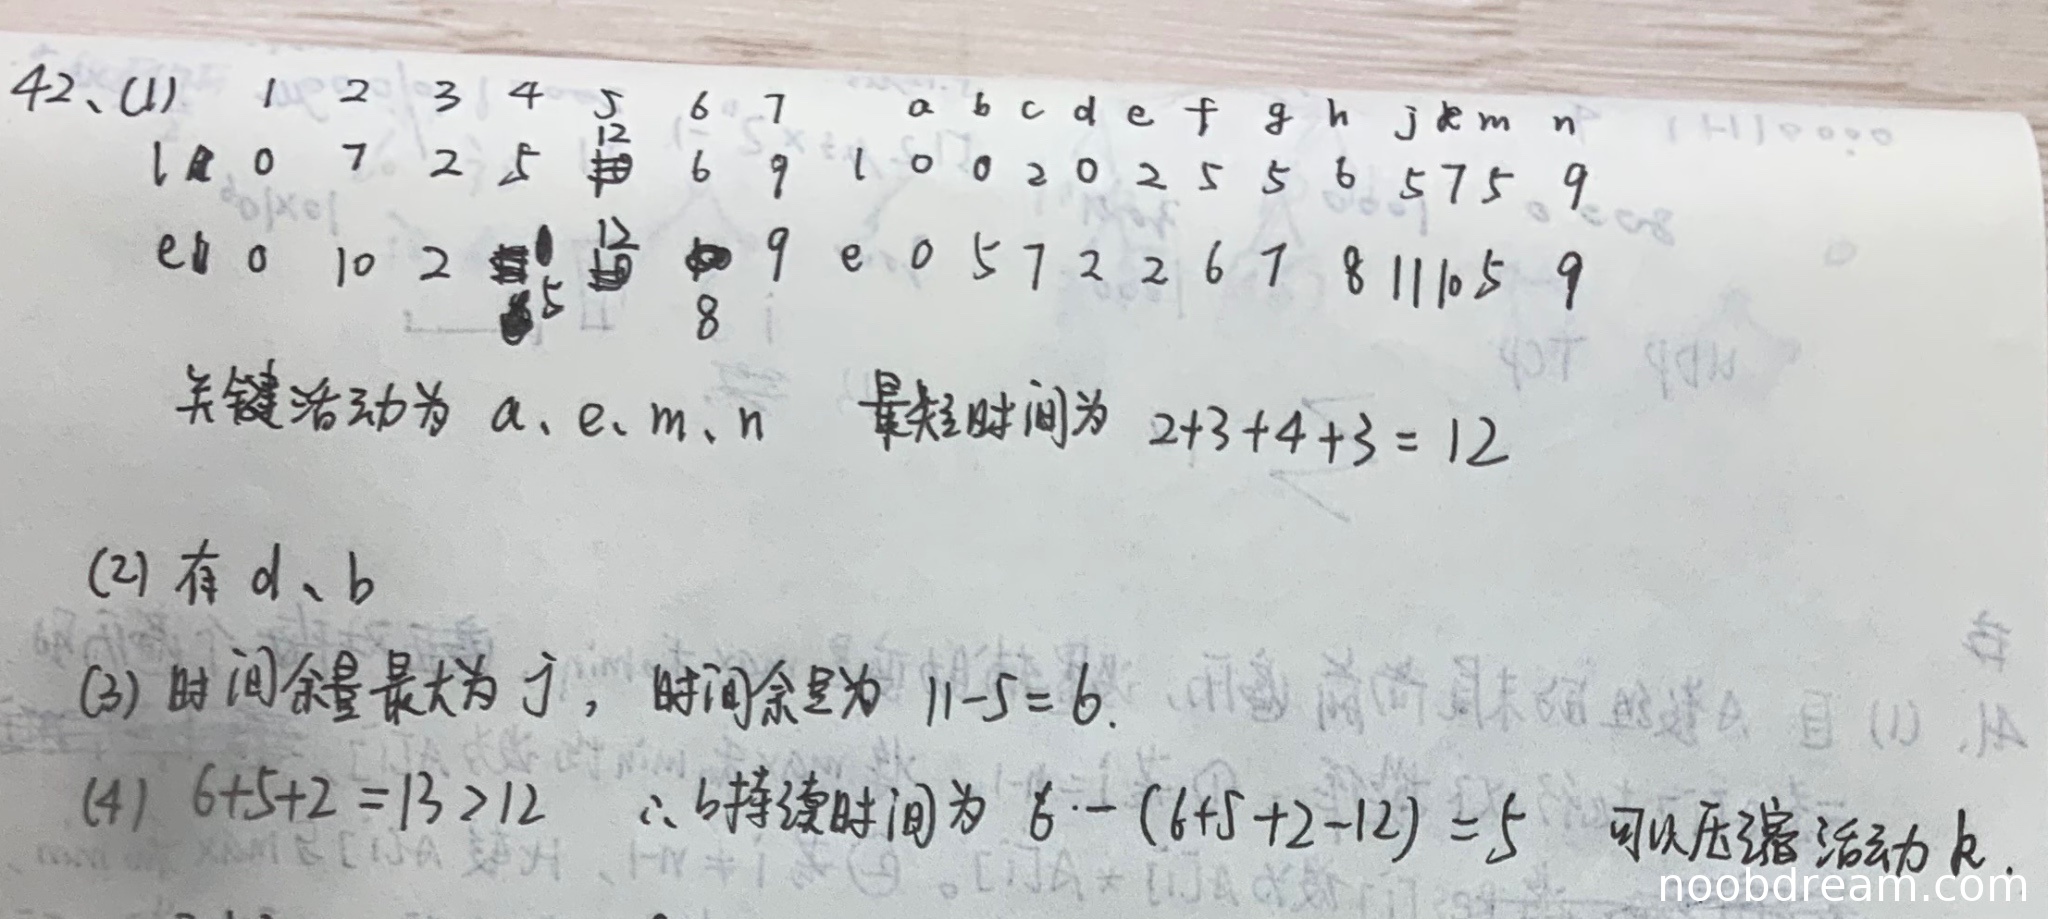 42、(1) 1 2 3 4 5 6 7 a b c d e f g h j k m n
l 0 7 2 5 12 6 9 l 0 0 2 0 2 5 5 6 5 7 5 9
e 0 10 2 5 12 8 9 e 0 5 7 2 2 6 7 8 11 10 5 9
关键活动为 a、e、m、n 最短时间为 2+3+4+3=12
(2) 有 d、b
(3) 时间余量最大为 j, 时间余量为 11-5=6.
(4) 6+5+2=13>12 ∴b持续时间为 6-(6+5+2-12)=5 可以压缩活动k.
noobdream.com